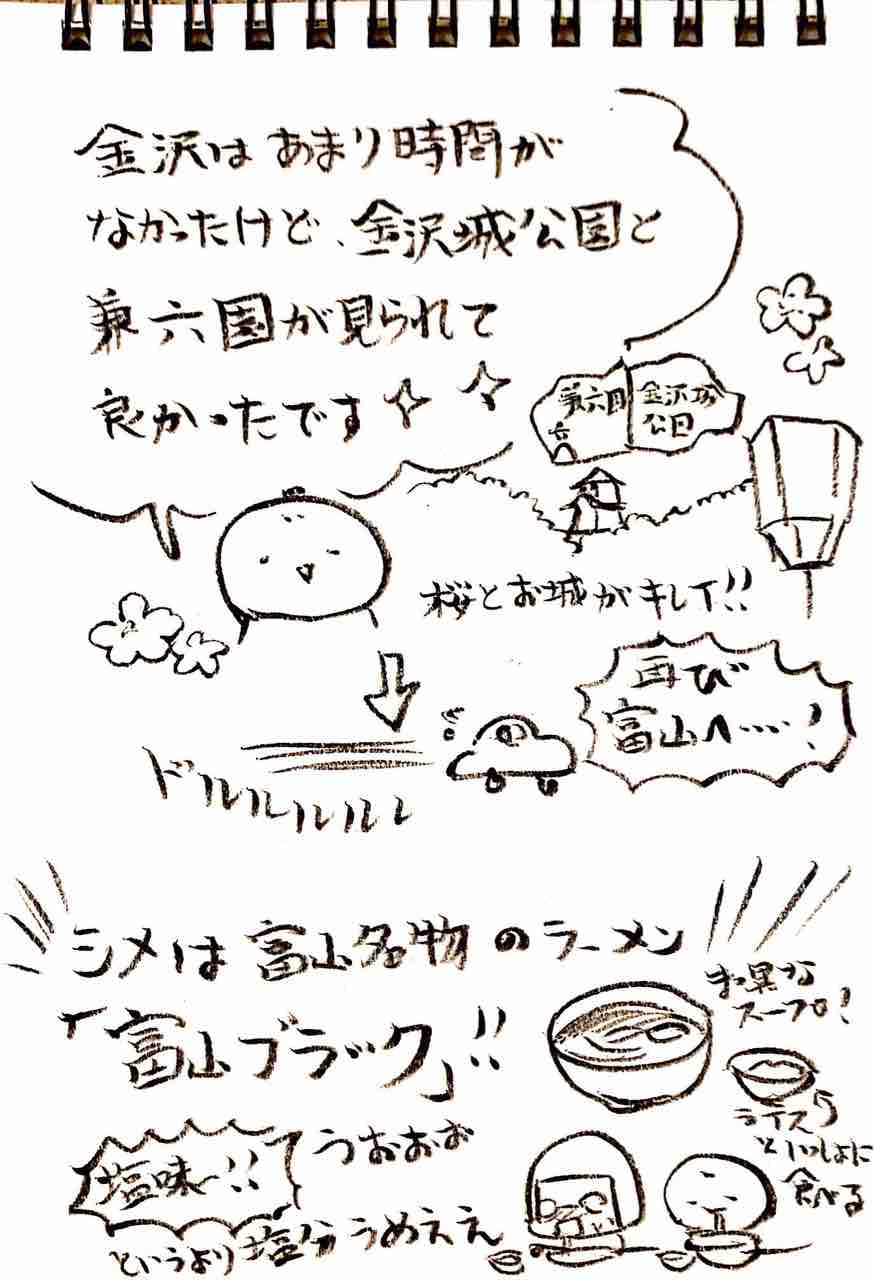 金沢はあまり時間が
なかったけど、金沢城公園と
兼六園が見られて
良かったです
兼六園
金沢城
公園
桜とお城がキレイ!!
再び
富山へ……!
ドルルルルルル
シメは富山名物のラーメン
「富山ブラック」!!
まっ黒な
スープ!
ライスと
いっしょに
食べる
塩味〜!!
というより塩分
うおおお
うめええ